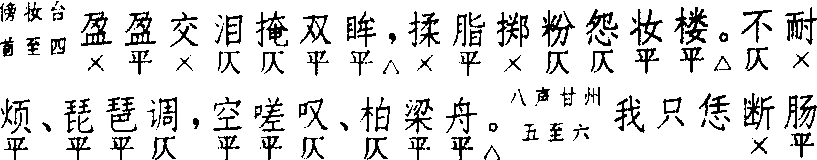 傍妆台
首至四 盈盈交泪掩双眸，揉脂掷粉怨妆楼。不耐
×平×仄仄平平△×平×仄仄平平△仄×
烦、琵琶调，空嗟叹、柏梁舟。 八声甘州
五至六 我只恁断肠
平平平仄平平仄仄平平△×平